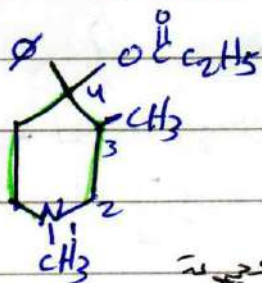 O
Ø O C C2H5
4
CH3
3
N 2
CH3